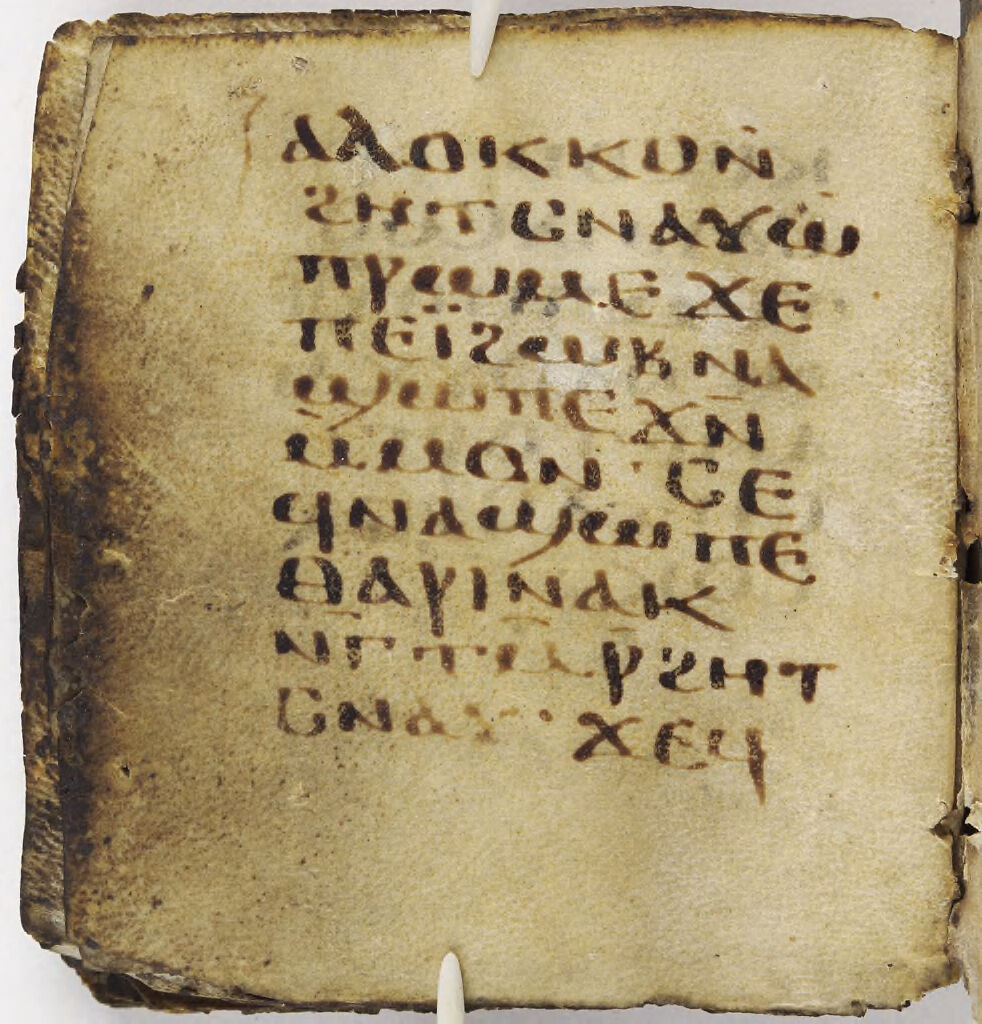 ⲁⲗⲟⲕⲕⲟⲛ̄
ϩⲏⲧⲥⲛⲁⲩⲱ̇
ⲡⲣⲱⲙⲉϫⲉ
ⲡⲉⲓ̈ϩⲱⲃⲛⲁ
ϣⲱⲡⲉϫⲛ̄
ⲙ̄ⲙⲟⲛ · ⲥⲉ
ϥⲛⲁϣⲱⲡⲉ
ⲑⲁⲣⲓⲛⲁⲕ
ⲛ̄ⲅⲧⲙ̄ⲣ̄ϩⲏⲧ
ⲥⲛⲁⲩ · ϫⲉϥ